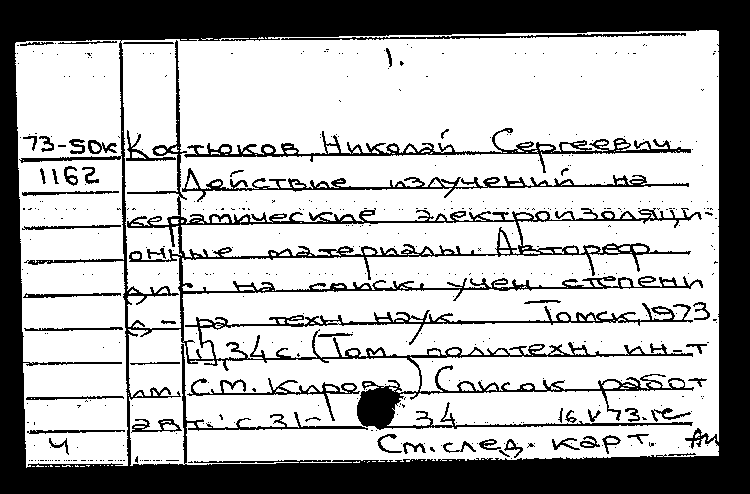 1.
73-50к Костюков, Николай Сергеевич.
1162 Действие излучений на
керамические электроизоляци-
онные материалы. Автореф.
дис. на соиск. учен. степени
д-ра техн. наук. Томск, 1973.
[1], 34 с. (Том. политехн. ин-т
им. С.М. Кирова) Список работ
авт.: с. 31-34 16.V 73.
ч См. след. карт.